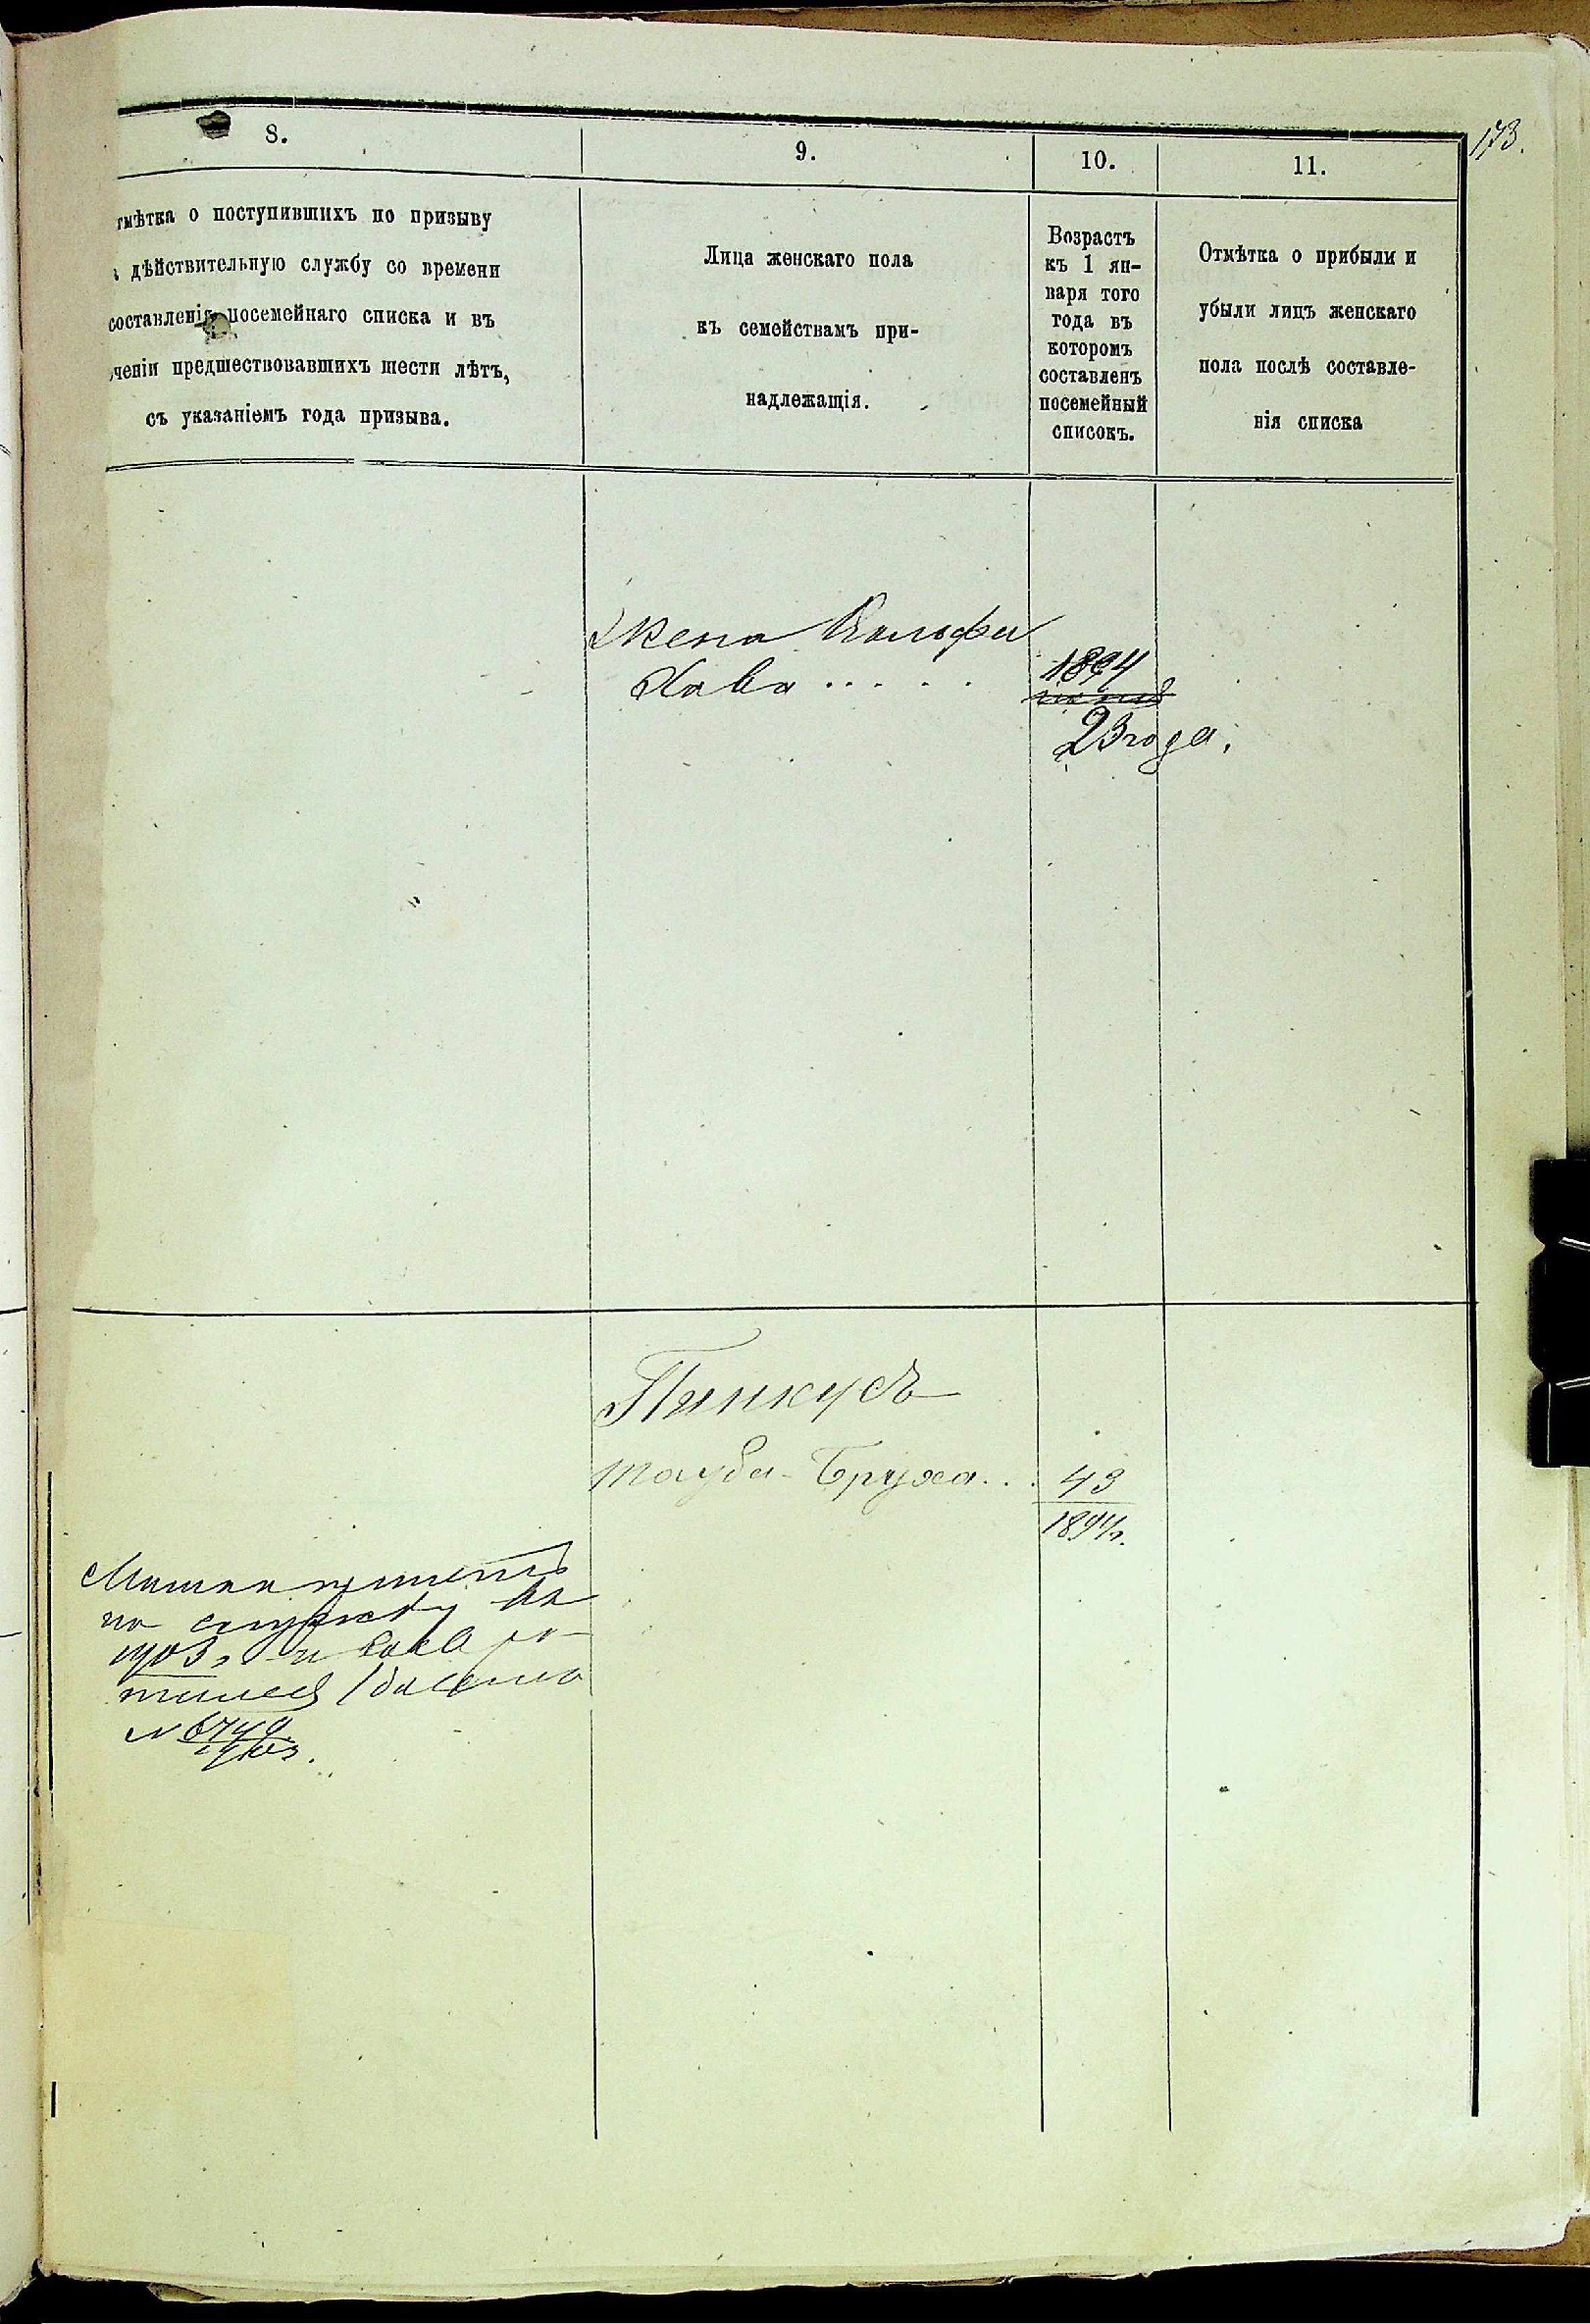 173.
8.
9.
10.
11.
тмѣтка о поступившихъ по призыву
дѣйствительную службу со времени
составленія посемейнаго списка и въ
ченіи предшествовавшихъ шести лѣтъ,
съ указаніемъ года призыва.
Лица женскаго пола
къ семействамъ при-
надлежащія.
Возрастъ
къ 1 ян-
варя того
года въ
которомъ
составленъ
посемейный
списокъ.
Отмѣтка о прибыли и
убыли лицъ женскаго
пола послѣ составле-
нія списка
Жена Вольфа
Хава . . . . .
1894
23 года.
Пинкусъ
Тауба-Бруха . . .
43
1894 г.
принятъ
на службу въ
1903 г. и
№ 6749
1903.